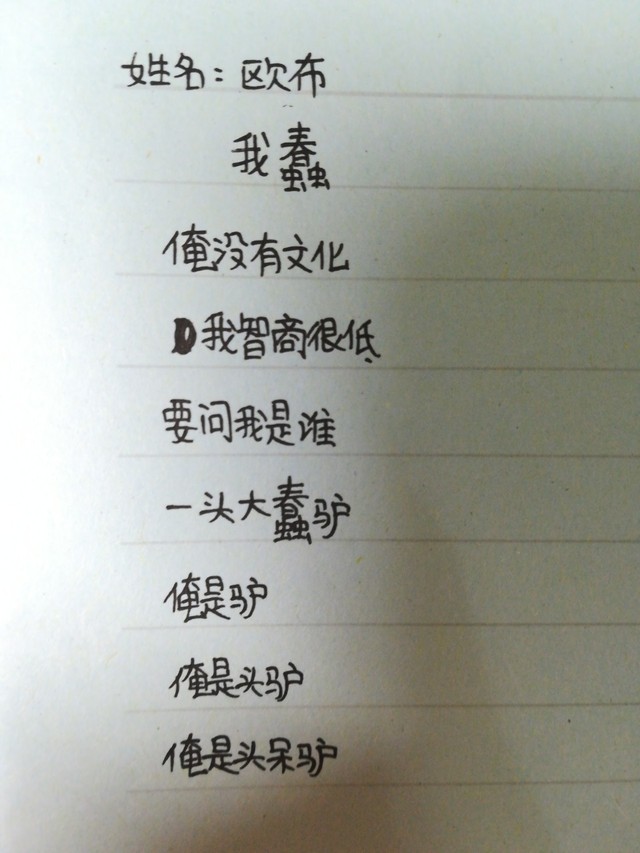 姓名：欧布
我蠢
俺没有文化
我智商很低
要问我是谁
一头大蠢驴
俺是驴
俺是头驴
俺是头呆驴